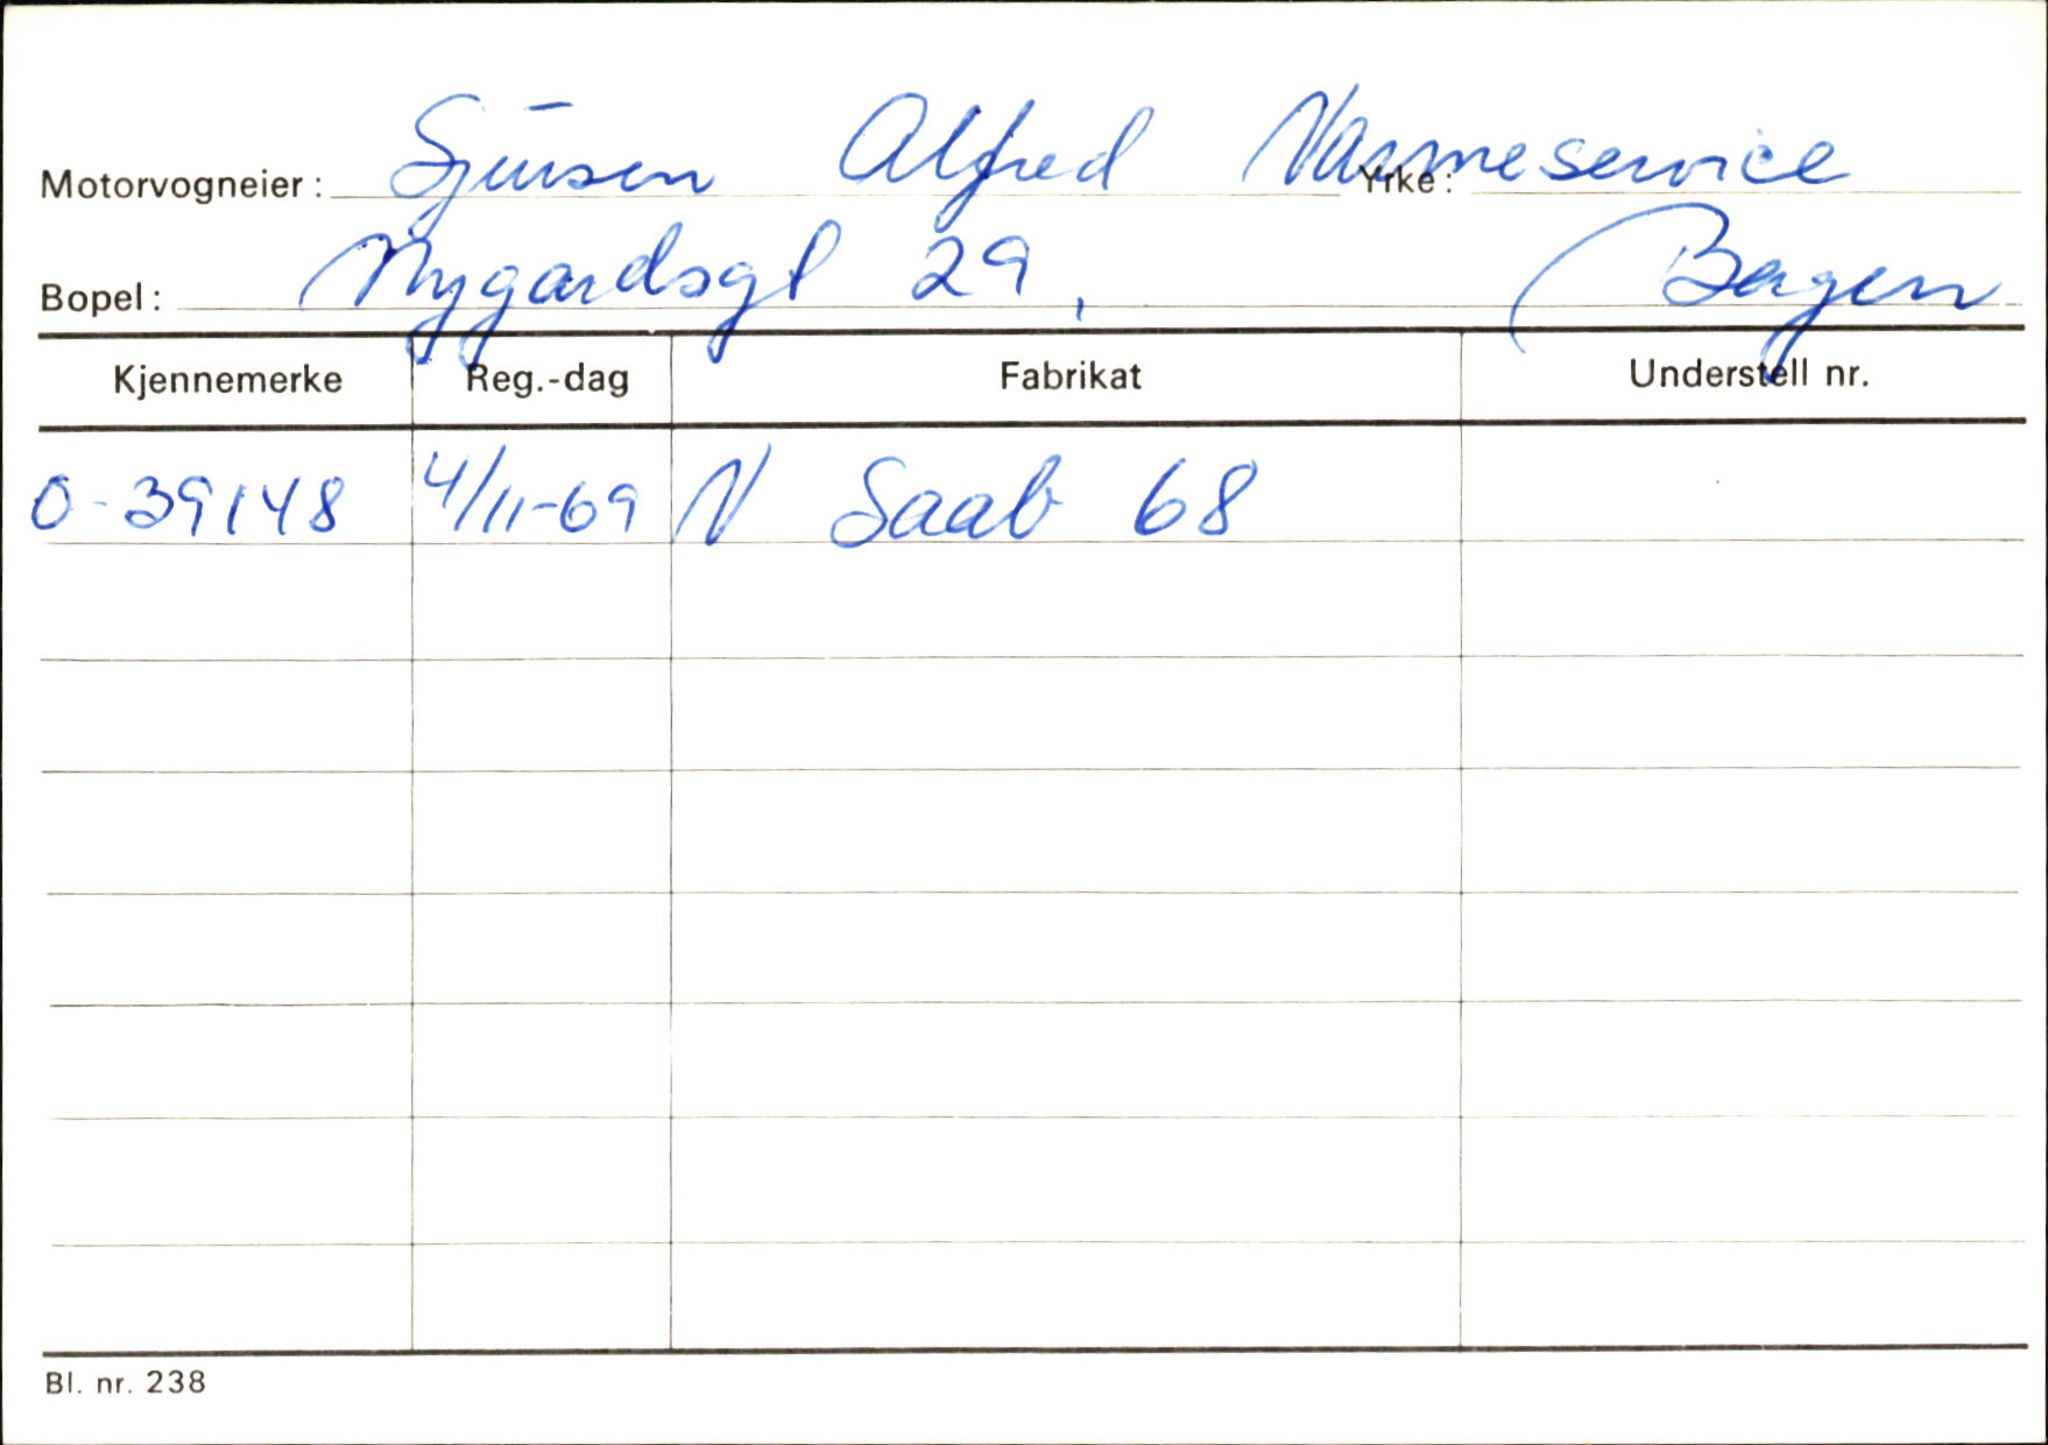 Motorvogneier: Sjursen Alfred Varmeservice Yrke:
Bopel: Nygardsgt 29, Bergen
Kjennemerke Reg.-dag Fabrikat Understell nr.
O-39148 4/11-69 N Saab 68
Bl. nr. 238